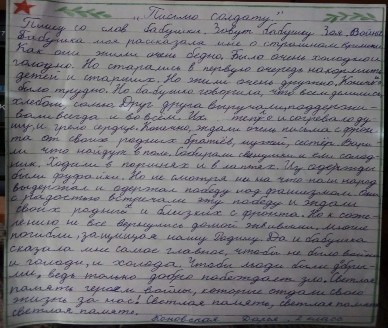 "Письмо солдату"
Пишу со слов бабушки. Зовут бабушку Зоя.
Бабушка моя рассказала мне о страшном времени.
Как они жили очень бедно. Было очень холодно и
голодно. Но старались в первую очередь накормить
детей и старших. Но жили очень дружно. Конечно
было трудно. Но бабушка говорила, что всем делились
хлебом, солью. Друг друга выручали, поддержи-
вали всегда и во всём. Их тепло и согревало ду-
шу, и грело сердце. Конечно, ждали очень письма с фрон-
та от своих родных братьев, мужей, сестёр.
ли что находили в поле. Собирали
Ходили в и в лаптях. Из одежды
были фуфайки. Но не смотря ни на что наш народ
выдержал и одержал победу над фашизмом.
с радостью встречали эту победу и ждали
своих родных и близких с фронта. Но к сожа-
лению не все вернулись домой живыми. Многие
погибли, защищая нашу Родину. Да и бабушка
сказала мне самое главное, чтобы не было войны
и голода, и холода. Чтобы люди были добры-
ми, ведь только добро побеждает зло. Светлая
память героям войны, которые отдали свою
жизнь за нас! Светлая память, светлая память,
светлая память.
Дарья 2 класс